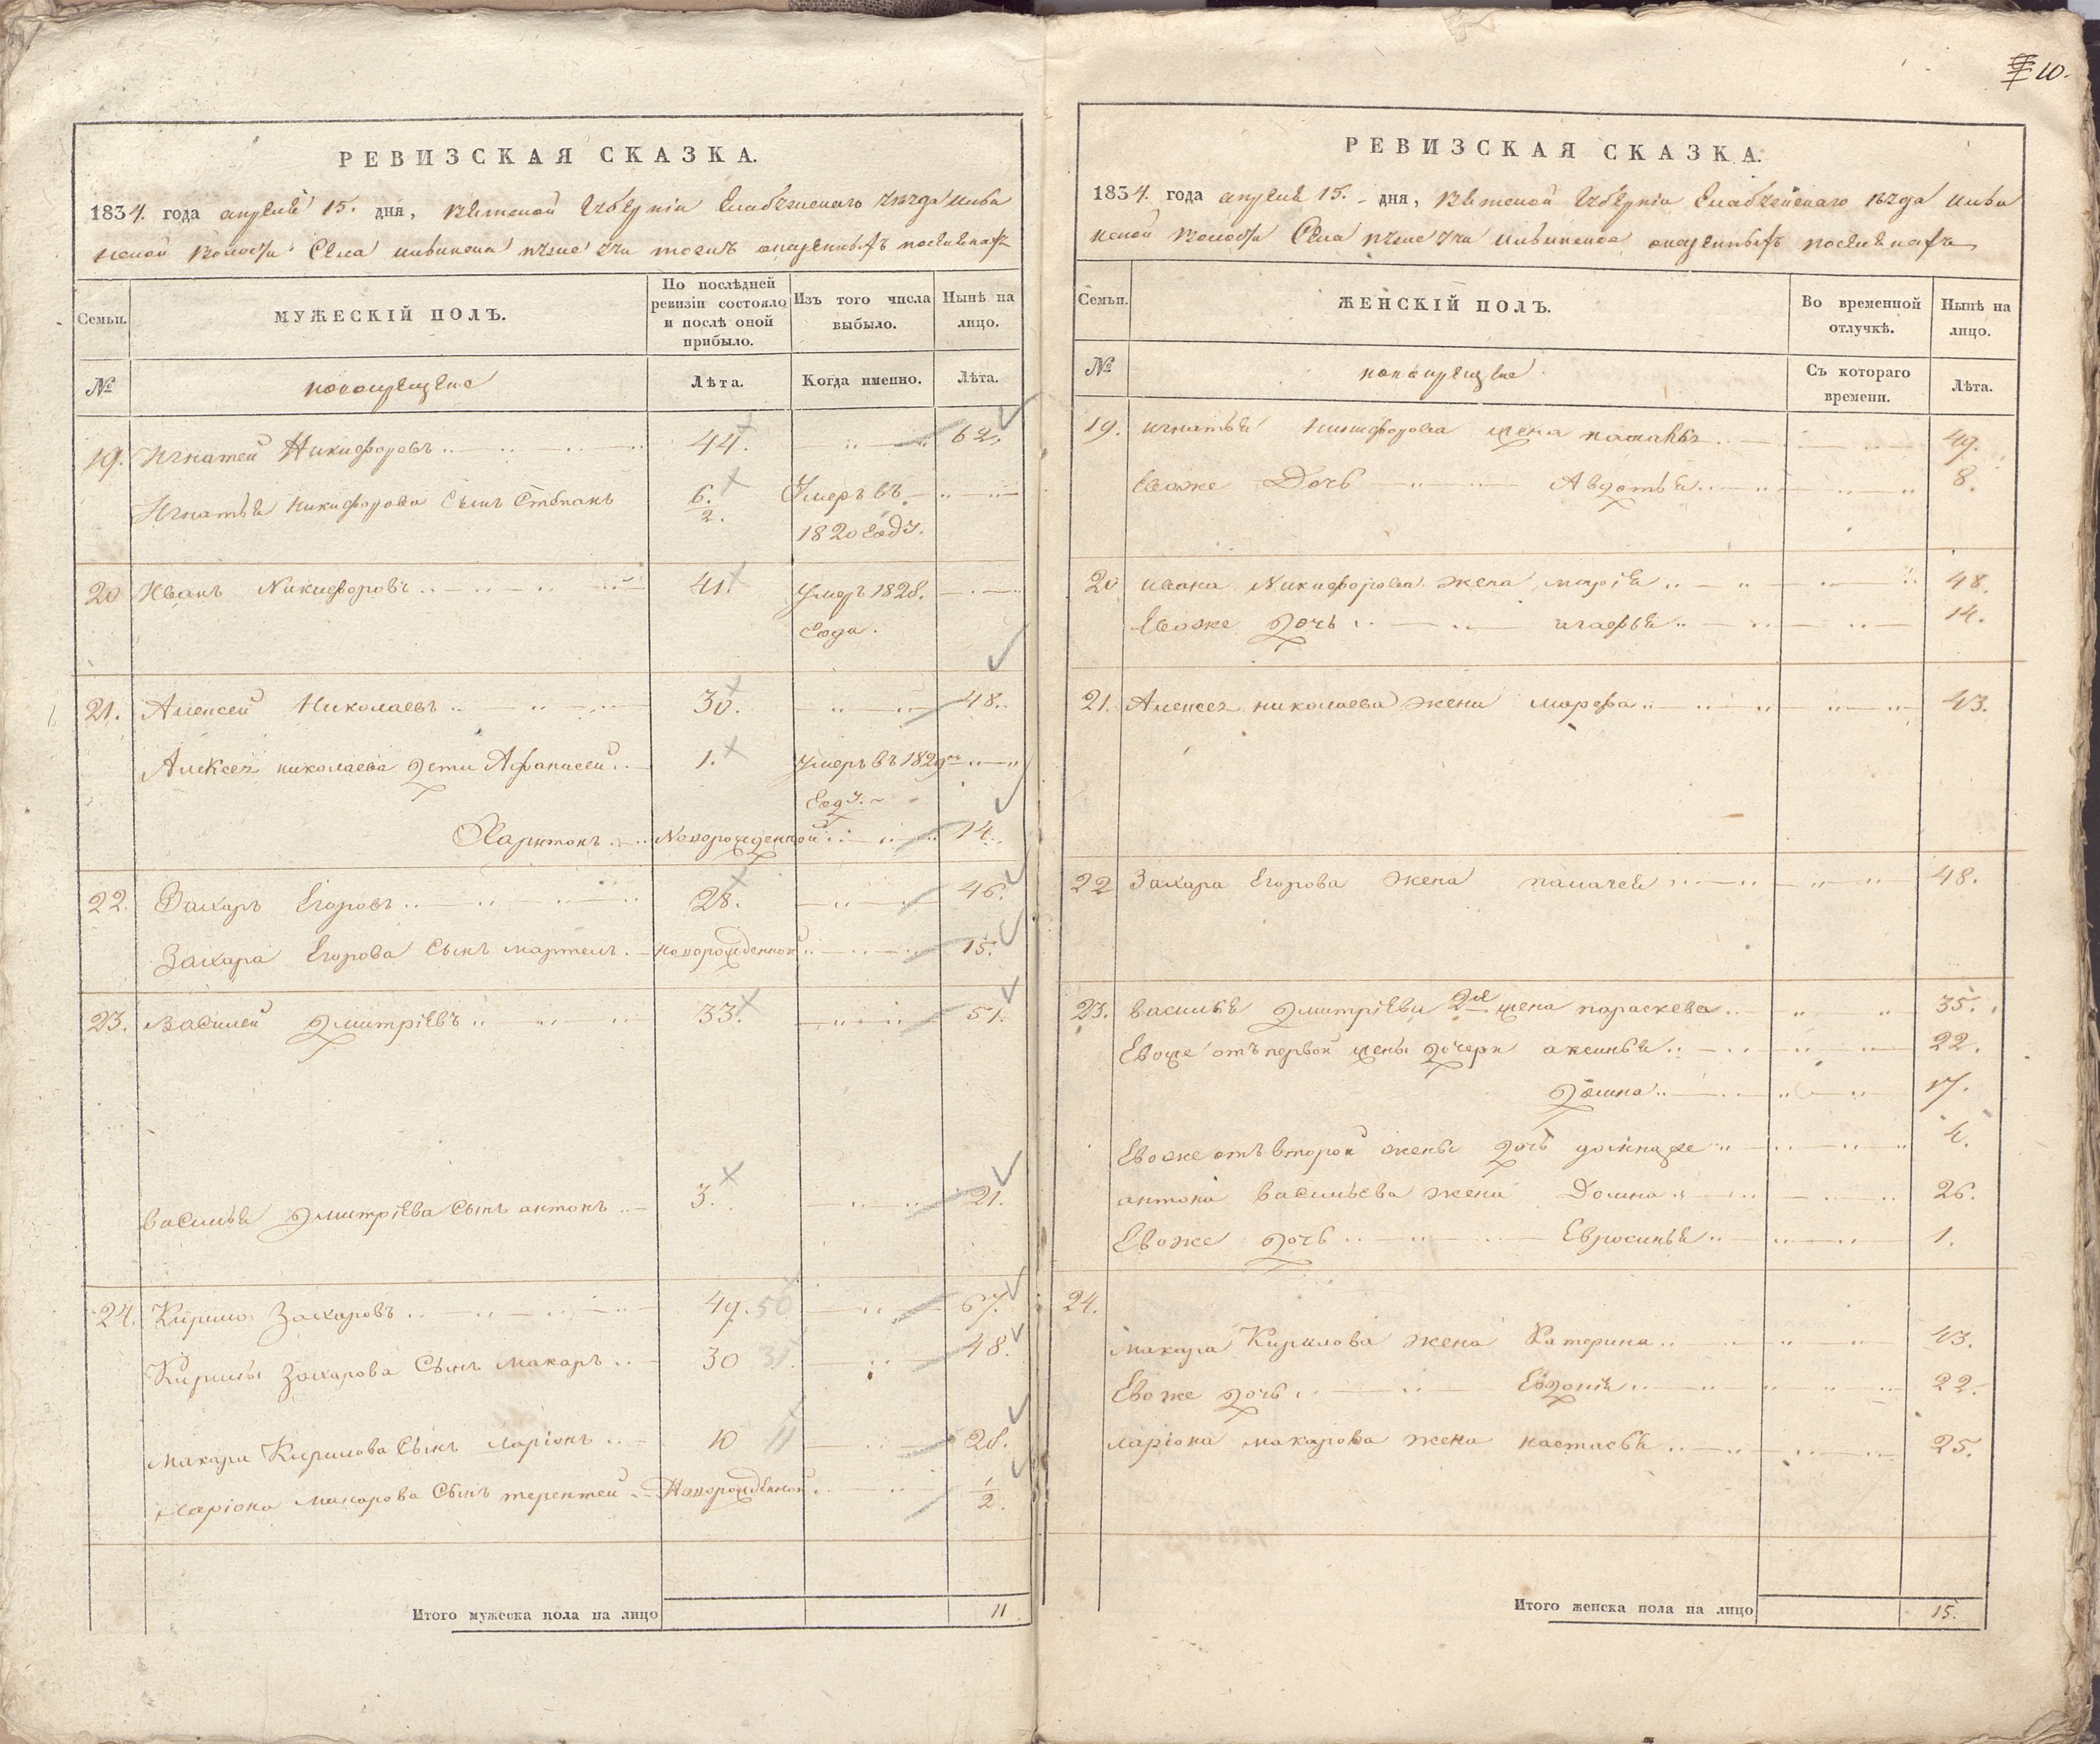 10.
РЕВИЗСКАЯ СКАЗКА.
1834. года апреля 15. дня, Вятской Губернiи Елабужскаго уѣзда
Волости Села
Семьи.
МУЖЕСКІЙ ПОЛЪ.
По послѣдней ревизіи состояло и послѣ оной прибыло.
Изъ того числа выбыло.
Нынѣ на лицо.
№
новокрещене
Лѣта.
Когда именно.
Лѣта.
19. Игнатей Никифоровъ 44. 62.
Игнатья Никифорова Сынъ Степанъ 6./2. Умеръ въ
1820 году.
20 Иванъ Никифоровъ 41. Умеръ 1828.
года.
21. Алексей Николаевъ 30. 48.
Алексея николаева дети Афанасей 1. Умеръ въ 1829м
году.
Харитонъ Новорожденной 14.
22. Захаръ Егоровъ 28. 46.
Захара Егорова Сынъ мартемъ новорожденной 15.
23. Василей Дмитрiевъ 33. 51.
василья Дмитрiева Сынъ антонъ 3. 21.
24. Кирило Захаровъ 49. 50 67.
Кирилы Захарова Сынъ Макаръ 30 31 48.
Макара Кирилова Сынъ ларiонъ 10 11 28.
Ларiона Макарова Сынъ терентей Новорожденной 1/2.
Итого мужеска пола на лицо 11
РЕВИЗСКАЯ СКАЗКА.
1834. года апреля 15. дня, Вятской Губернiи Елабужскаго уѣзда
Волости Села
Семьи.
ЖЕНСКІЙ ПОЛЪ.
Во временной отлучкѣ.
Нынѣ на лицо.
№
новокрещене
Съ котораго времени.
Лѣта.
19. игнатья Никифорова жена 49.
Евоже Дочь Авдотья 8.
20 ивана Никифорова жена марiя 48.
Евоже дочь агафья 14.
21. Алексея николаева жена марфа 43.
22 Захара Егорова жена пелагея 48.
23. василья Дмитрiева 2я жена параскева 35.
Евоже отъ первой жены дочери аксинья 22.
Домна 17.
Евоже отъ второй жены дочь 4.
антона васильева жена Домна 26.
Евоже дочь Евросинья 1.
24.
макара Кирилова жена Катерина 43.
Евоже дочь Евдокiя 22.
ларiона макарова жена настасья 25.
Итого женска пола на лицо 15.